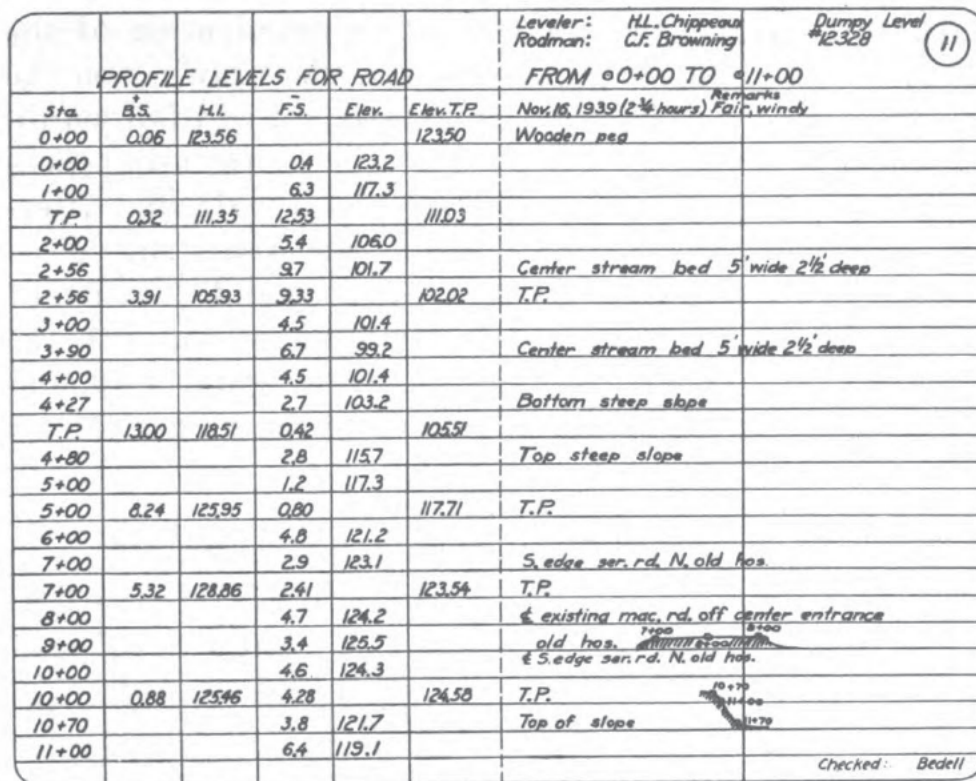 Leveler: H.L. Chippeaux Dumpy Level
Rodman: C.F. Browning #12328 11
PROFILE LEVELS FOR ROAD FROM 0+00 TO 11+00
+ - Remarks
Sta. B.S. H.I. F.S. Elev. Elev. T.P. Nov. 16, 1939 (2 3/4 hours) Fair, windy
0+00 0.06 123.56 123.50 Wooden peg
0+00 0.4 123.2
1+00 6.3 117.3
T.P. 0.32 111.35 12.53 111.03
2+00 5.4 106.0
2+56 9.7 101.7 Center stream bed 5' wide 2 1/2' deep
2+56 3.91 105.93 9.33 102.02 T.P.
3+00 4.5 101.4
3+90 6.7 99.2 Center stream bed 5' wide 2 1/2' deep
4+00 4.5 101.4
4+27 2.7 103.2 Bottom steep slope
T.P. 13.00 118.51 0.42 105.51
4+80 2.8 115.7 Top steep slope
5+00 1.2 117.3
5+00 8.24 125.95 0.80 117.71 T.P.
6+00 4.8 121.2
7+00 2.9 123.1 S. edge ser. rd. N. old hos.
7+00 5.32 128.86 2.41 123.54 T.P.
8+00 4.7 124.2 ℄ existing mac. rd. off center entrance
9+00 3.4 125.5 old hos. 7+00 8+00
10+00 4.6 124.3 ℄ S. edge ser. rd. N. old hos.
10+00 0.88 125.46 4.28 124.58 T.P. 10+70
11+00
10+70 3.8 121.7 Top of slope 11+70
11+00 6.4 119.1
Checked: Bedell